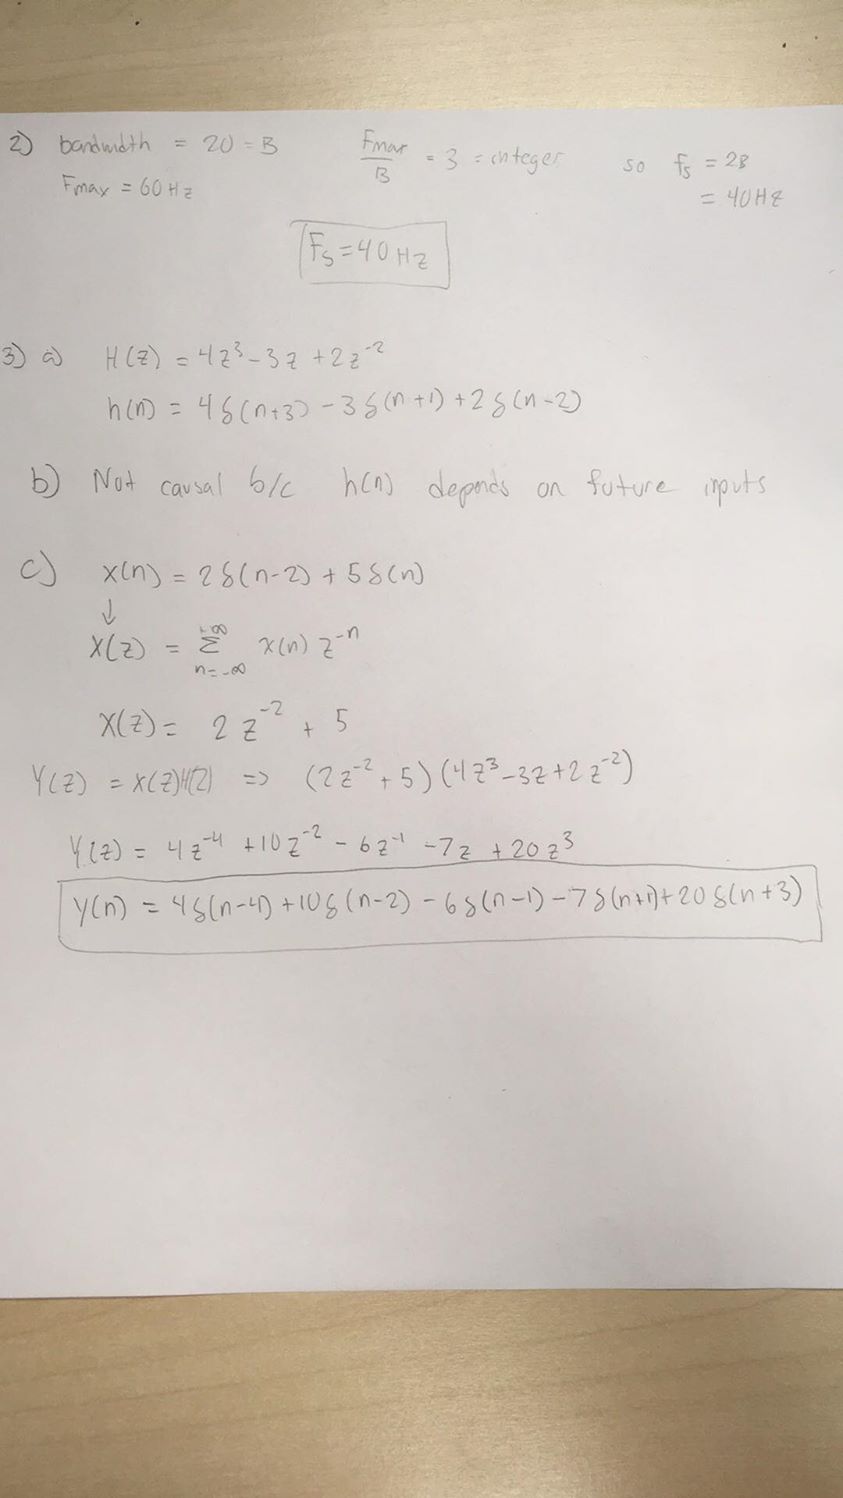 2) bandwidth = 20 = B   Fmax/B = 3 = integer   so fs = 2B
Fmax = 60 Hz   = 40 Hz
Fs = 40 Hz
3) a) H(z) = 4z³ - 3z + 2z⁻²
h(n) = 4δ(n+3) - 3δ(n+1) + 2δ(n-2)
b) Not causal b/c h(n) depends on future inputs
c) x(n) = 2δ(n-2) + 5δ(n)
↓
X(z) = Σ_{n=-∞}^{+∞} x(n) z⁻ⁿ
X(z) = 2z⁻² + 5
Y(z) = X(z)H(z) => (2z⁻² + 5)(4z³ - 3z + 2z⁻²)
Y(z) = 4z⁻⁴ + 10z⁻² - 6z⁻¹ - 7z + 20z³
y(n) = 4δ(n-4) + 10δ(n-2) - 6δ(n-1) - 7δ(n+1) + 20δ(n+3)